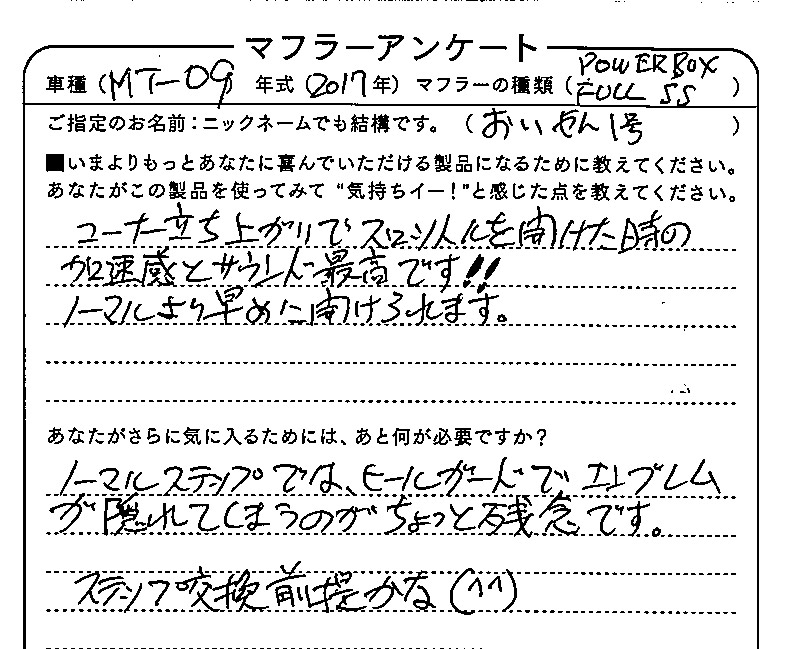 マフラーアンケート
車種(MT-09) 年式(2017年) マフラーの種類(POWERBOX FULL SS)
ご指定のお名前:ニックネームでも結構です。(おいせん1号)
■いまよりもっとあなたに喜んでいただける製品になるために教えてください。
あなたがこの製品を使ってみて“気持ちイー!”と感じた点を教えてください。
コーナー立ち上がりでスロットルを開けた時の
加速感とサウンド最高です!!
ノーマルより早めに開けられます。
あなたがさらに気に入るためには、あと何が必要ですか?
ノーマルステップでは、ヒールガードでエンブレム
が隠れてしまうのがちょっと残念です。
ステップ交換前提かな(^^)